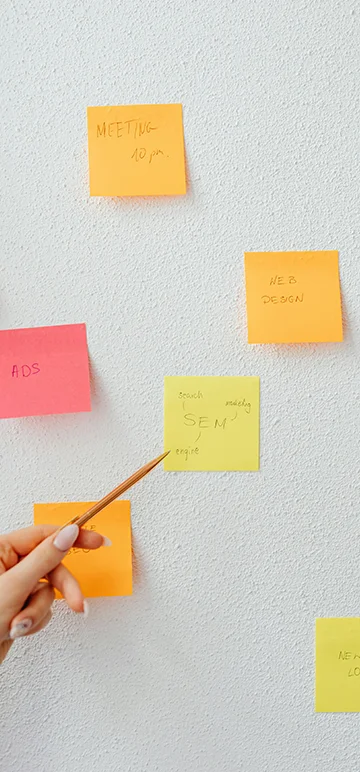 MEETING
10 pm.
WEB
DESIGN
ADS
search
marketing
SEM
engine